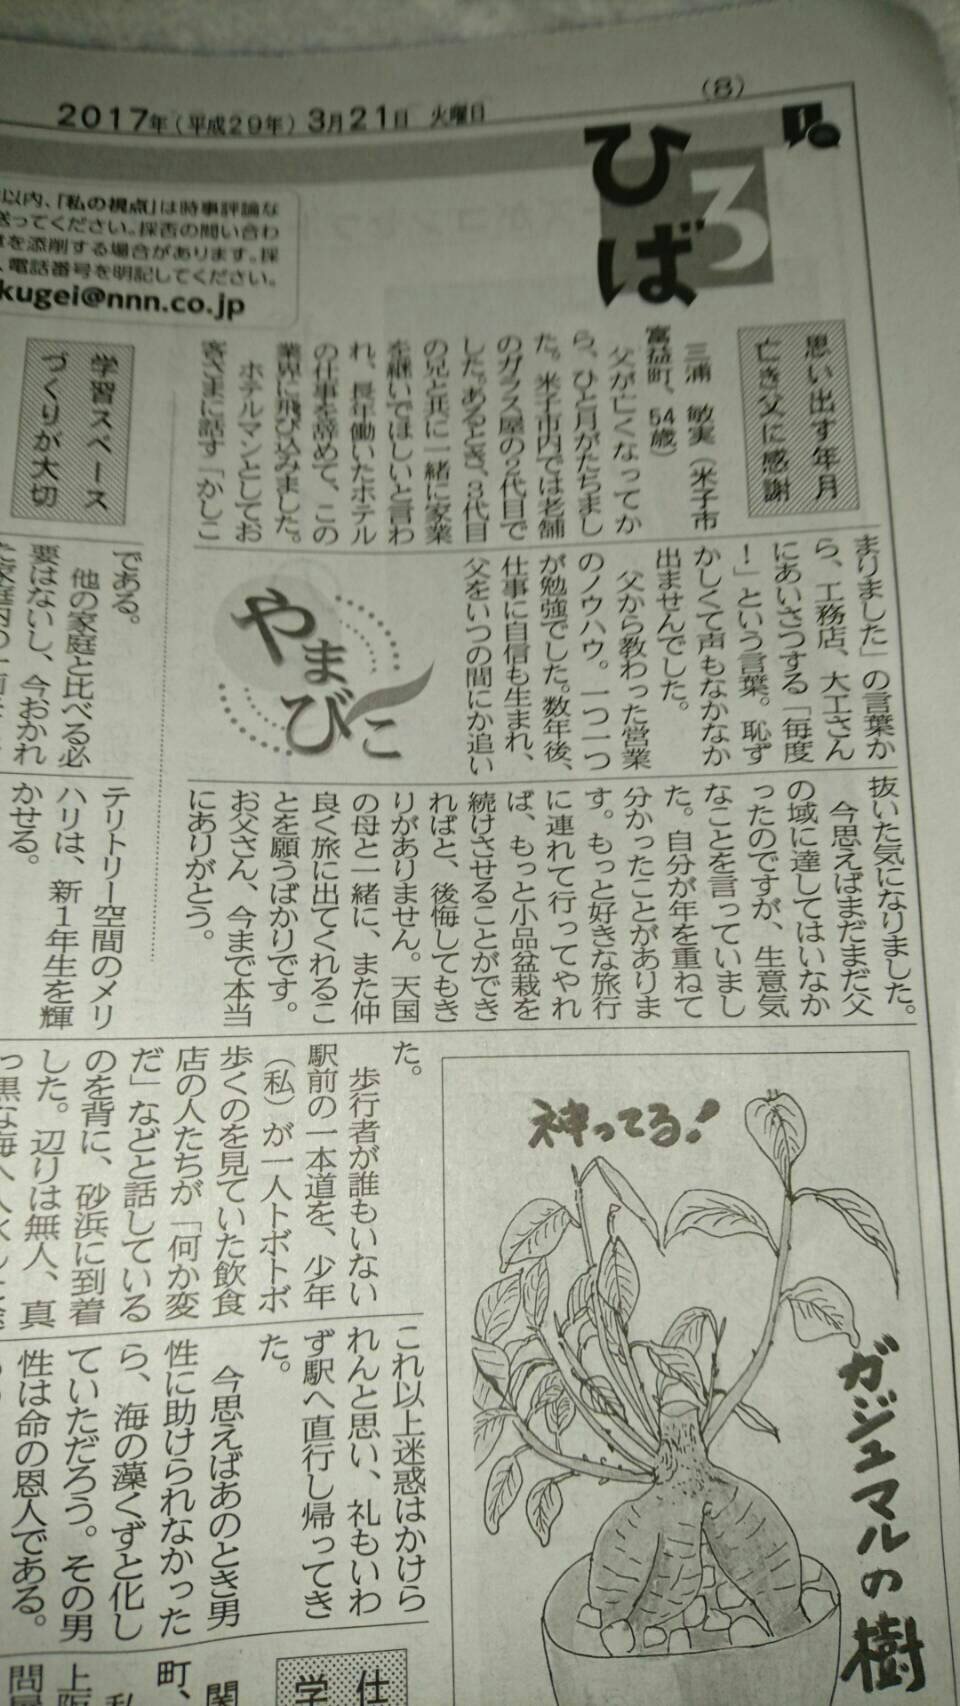 (8)
2017年(平成29年) 3月21日 火曜日
ひば
ろ
以内、「私の視点」は時事評論な
送ってください。採否の問い合わ
を添削する場合があります。採
、電話番号を明記してください。
kugei@nnn.co.jp
思い出す年月
亡き父に感謝
三浦 敏実(米子市
富益町、54歳)
父が亡くなってか
ら、ひと月がたちまし
た。米子市内では老舗
のガラス屋の2代目で
した。あるとき、3代目
の兄と共に一緒に家業
を継いでほしいと言わ
れ、長年働いたホテル
の仕事を辞めて、この
業界に飛び込みました。
ホテルマンとしてお
客さまに話す「かしこ
まりました」の言葉か
ら、工務店、大工さん
にあいさつする「毎度
!」という言葉。恥ず
かしくて声もなかなか
出ませんでした。
父から教わった営業
のノウハウ。一つ一つ
が勉強でした。数年後、
仕事に自信も生まれ、
父をいつの間にか追い
抜いた気になりました。
今思えばまだまだ父
の域に達してはいなか
ったのですが、生意気
なことを言っていまし
た。自分が年を重ねて
分かったことがありま
す。もっと好きな旅行
に連れて行ってやれ
ば、もっと小品盆栽を
続けさせることができ
ればと、後悔してもき
りがありません。天国
の母と一緒に、また仲
良く旅に出てくれるこ
とを願うばかりです。
お父さん、今まで本当
にありがとう。
やまびこ
学習スペース
づくりが大切
である。
他の家庭と比べる必
要はないし、今おかれ
テリトリー空間のメリ
ハリは、新1年生を輝
かせる。
た。
歩行者が誰もいない
駅前の一本道を、少年
(私)が一人トボトボ
歩くのを見ていた飲食
店の人たちが「何か変
だ」などと話している
のを背に、砂浜に到着
した。辺りは無人、真
っ黒な海へ
これ以上迷惑はかけら
れんと思い、礼もいわ
ず駅へ直行し帰ってき
た。
今思えばあのとき男
性に助けられなかった
ら、海の藻くずと化し
ていただろう。その男
性は命の恩人である。
神ってる!
ガジュマルの樹
仕
学
関
町、
私
上阪
問屋